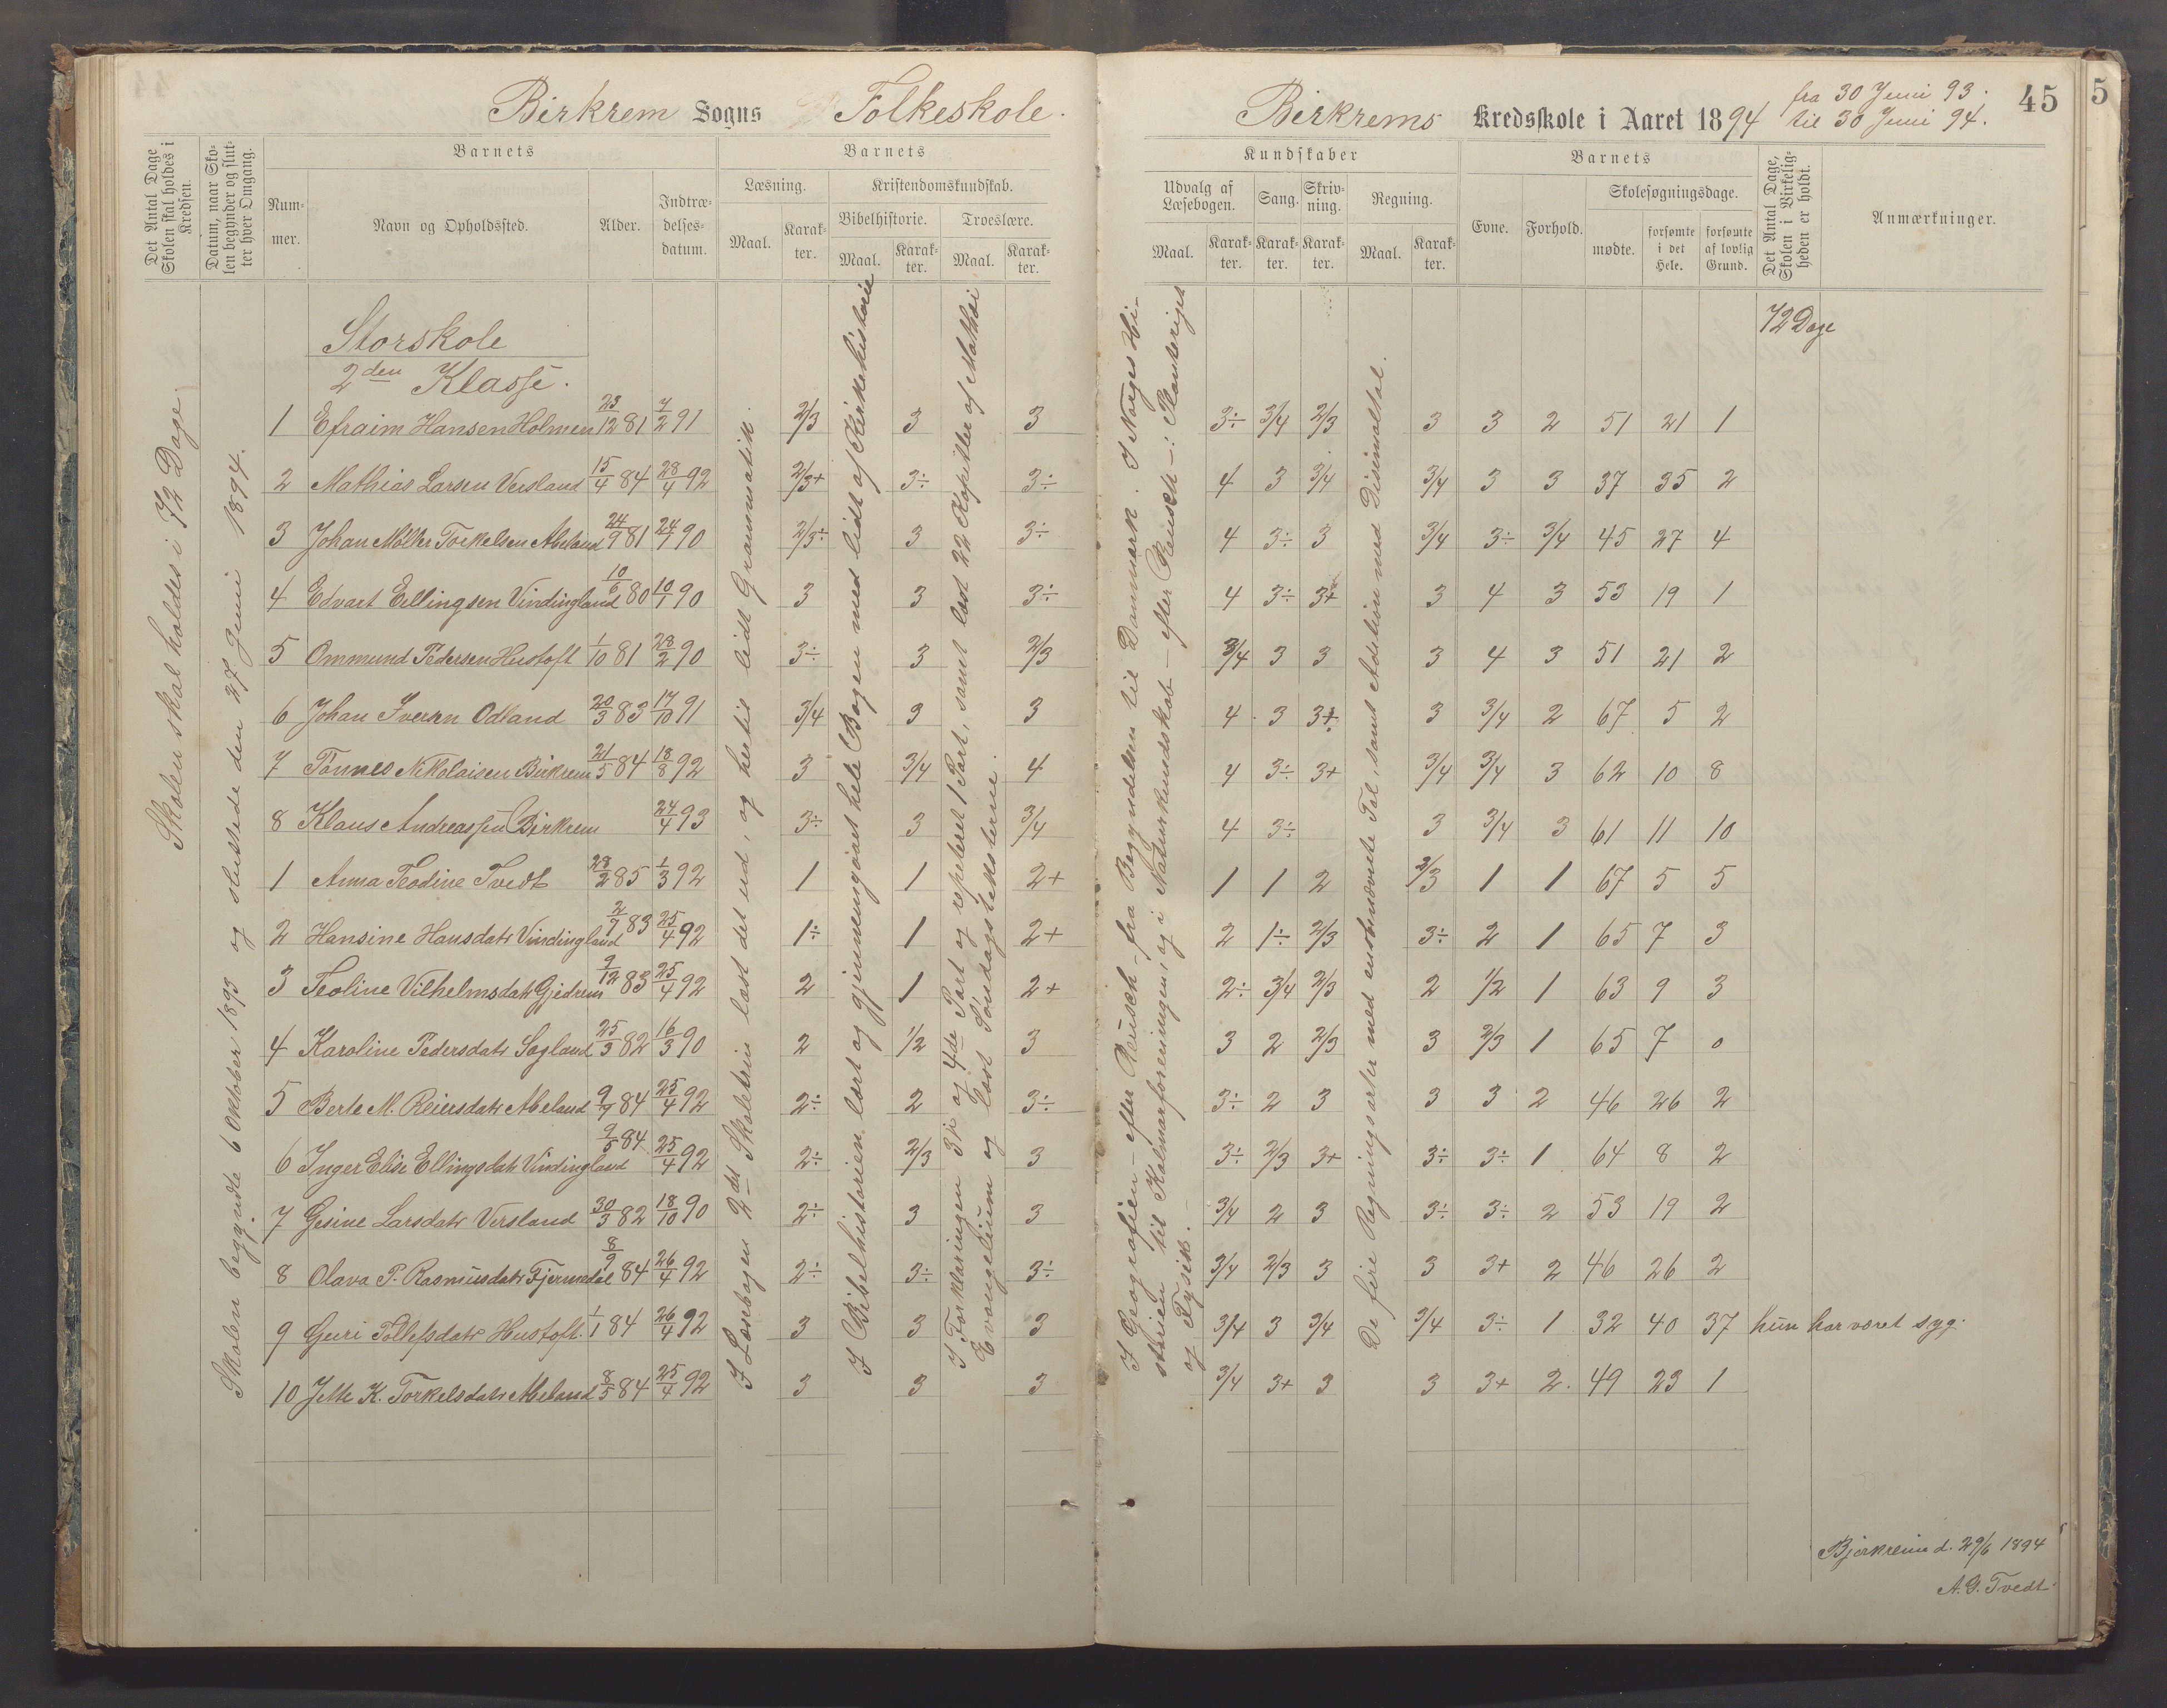 Birkrem Sogns Folkeskole.
Birkrems Kredsskole i Aaret 1894 fra 30 Juni 93.
til 30 Juni 94.
45
5
Det Antal Dage Skolen skal holdes i Kredsen.
Datum, naar Skolen begynder og slutter hver Omgang.
Barnets
Nummer.
Navn og Opholdssted.
Alder.
Indtrædelsesdatum.
Barnets
Læsning.
Maal.
Karakter.
Kristendomskundskab.
Bibelhistorie.
Maal.
Karakter.
Troeslære.
Maal.
Karakter.
Kundskaber
Udvalg af Læsebogen.
Maal.
Karakter.
Sang.
Karakter.
Skrivning.
Karakter.
Regning.
Maal.
Karakter.
Barnets
Evne.
Forhold.
Skolesøgningsdage.
mødte.
forsømte i det Hele.
forsømte af lovlig Grund.
Det Antal Dage, Skolen i Virkeligheden er holdt.
Anmærkninger.
Skolen skal holdes i 72 Dage.
Skolen begyndte 6 Oktober 1893 og sluttede den 27 Juni 1894.
Storskole
2den Klasse.
72 Dage
I Læsebogen 2det Skoletrin læst det ud, og hertil lidt Grammatik.
I Bibelhistorien lært og gjennemgaaet hele Bogen med lidt af Kirkehistorie
I Forklaringen 3je og 4de Part og repeteret 1 Part, samt læst 22 Kapitler af Mathæi
Evangelium og læst Søndagsteksterne.
I Geografien - efter Reusch - fra Begyndelsen til Danmark. I Norges Hi-
storien til Kalmarforeningen, og i Naturkundskab - efter Reusch -: Planteriget
og Fysik.
De fire Regningsarter med ensbenævnte Tal, samt Addition med Disimaltal.
1 Efraim Hansen Holmen 23/12 81 7/2 91 2/3 3 3 3÷ 3/4 2/3 3 3 2 51 21 1
2 Mathias Larsen Versland 15/4 84 28/4 92 2/3+ 3÷ 3÷ 4 3 3/4 3/4 3 3 37 35 2
3 Johan Møller Torkelsen Abeland 24/9 81 24/1 90 2/3÷ 3 3÷ 4 3÷ 3 3/4 3÷ 3/4 45 27 4
4 Edvart Ellingsen Vindingland 10/6 80 10/1 90 3 3 3÷ 4 3÷ 3+ 3 4 3 53 19 1
5 Ommund Pedersen Hustoft 1/10 81 28/2 90 3÷ 3 2/3 3/4 3 3 3 4 3 51 21 2
6 Johan Iversen Odland 20/3 83 17/10 91 3/4 3 3 4 3 3+ 3 3/4 2 67 5 2
7 Tønnes Nikolaisen Birkrem 21/5 84 18/8 92 3 3/4 4 4 3÷ 3+ 3/4 3/4 3 62 10 8
8 Klaus Andreassen Birkrem 24/4 93 3÷ 3 3/4 4 3÷ 3 3/4 3 61 11 10
1 Anna Teodine Tvedt 28/2 85 1/3 92 1 1 2+ 1 1 2 2/3 1 1 67 5 5
2 Hansine Hansdatr Vindingland 2/7 83 25/4 92 1÷ 1 2+ 2 1÷ 2/3 3÷ 2 1 65 7 3
3 Teoline Vilhelmsdatr Gjedrem 9/12 83 25/4 92 2 1 2+ 2÷ 3/4 2/3 2 1/2 1 63 9 3
4 Karoline Pedersdatr Sagland 25/3 82 16/3 90 2 1/2 3 3 2 2/3 3 2/3 1 65 7 0
5 Berte M. Reiersdatr Abeland 9/7 84 25/4 92 2÷ 2 3÷ 3÷ 2 3 3 3 2 46 26 2
6 Inger Elise Ellingsdatr Vindingland 9/5 84 25/4 92 2÷ 2/3 3 3÷ 2/3 3+ 3÷ 3÷ 1 64 8 2
7 Gesine Larsdatr Versland 30/3 82 18/10 90 2÷ 3 3 3/4 2 3 3÷ 3÷ 2 53 19 2
8 Olava P. Rasmusdatr Fjermedal 8/9 84 26/4 92 2÷ 3÷ 3÷ 3/4 2/3 3 3 3+ 2 46 26 2
9 Guri Tollefsdatr Hustoft. 1/1 84 26/4 92 3 3 3 3/4 3 3/4 3/4 3÷ 1 32 40 37 hun har været syg.
10 Jette K. Torkelsdatr Abeland 8/5 84 25/4 92 3 3 3 3/4 3+ 3 3 3+ 2. 49 23 1
Bjerkreim d. 29/6 1894
A. G. Tvedt